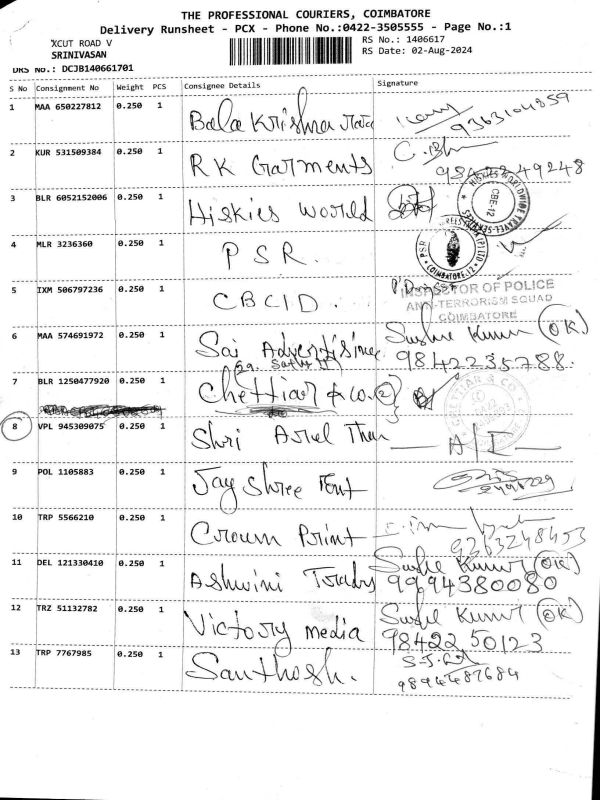 THE PROFESSIONAL COURIERS, COIMBATORE
Delivery Runsheet - PCX - Phone No.:0422-3505555 - Page No.:1
XCUT ROAD V
SRINIVASAN
RS No.: 1406617
RS Date: 02-Aug-2024
DRS No.: DCJB140661701
S No Consignment No Weight PCS Consignee Details Signature
1 MAA 650227812 0.250 1 Bala Krishna
9363104859
2 KUR 531509384 0.250 1 R K Garments
49248
3 BLR 6052152006 0.250 1 Hiskies World
CBE-12
4 MLR 3236360 0.250 1 PSR.
PSR COIMBATORE-12
5 IXM 506797236 0.250 1 CBCID.
INSPECTOR OF POLICE
ANTI-TERRORISM SQUAD
COIMBATORE
6 MAA 574691972 0.250 1 Sai Advertising Sushil Kumar (OK)
9842235788.
7 BLR 1250477920 0.250 1 Chettiar & Co.
CHETTIAR & CO
8 VPL 945309075 0.250 1 Shri Arul
9 POL 1105883 0.250 1 Jay Shree
10 TRP 5566210 0.250 1 Crown Print
9263248453
11 DEL 121330410 0.250 1 Ashwini Sushil Kumar (OK)
9994380080
12 TRZ 51132782 0.250 1 Victory media Sushil Kumar (OK)
98422 50123
13 TRP 7767985 0.250 1 Santhosh.
9894487684